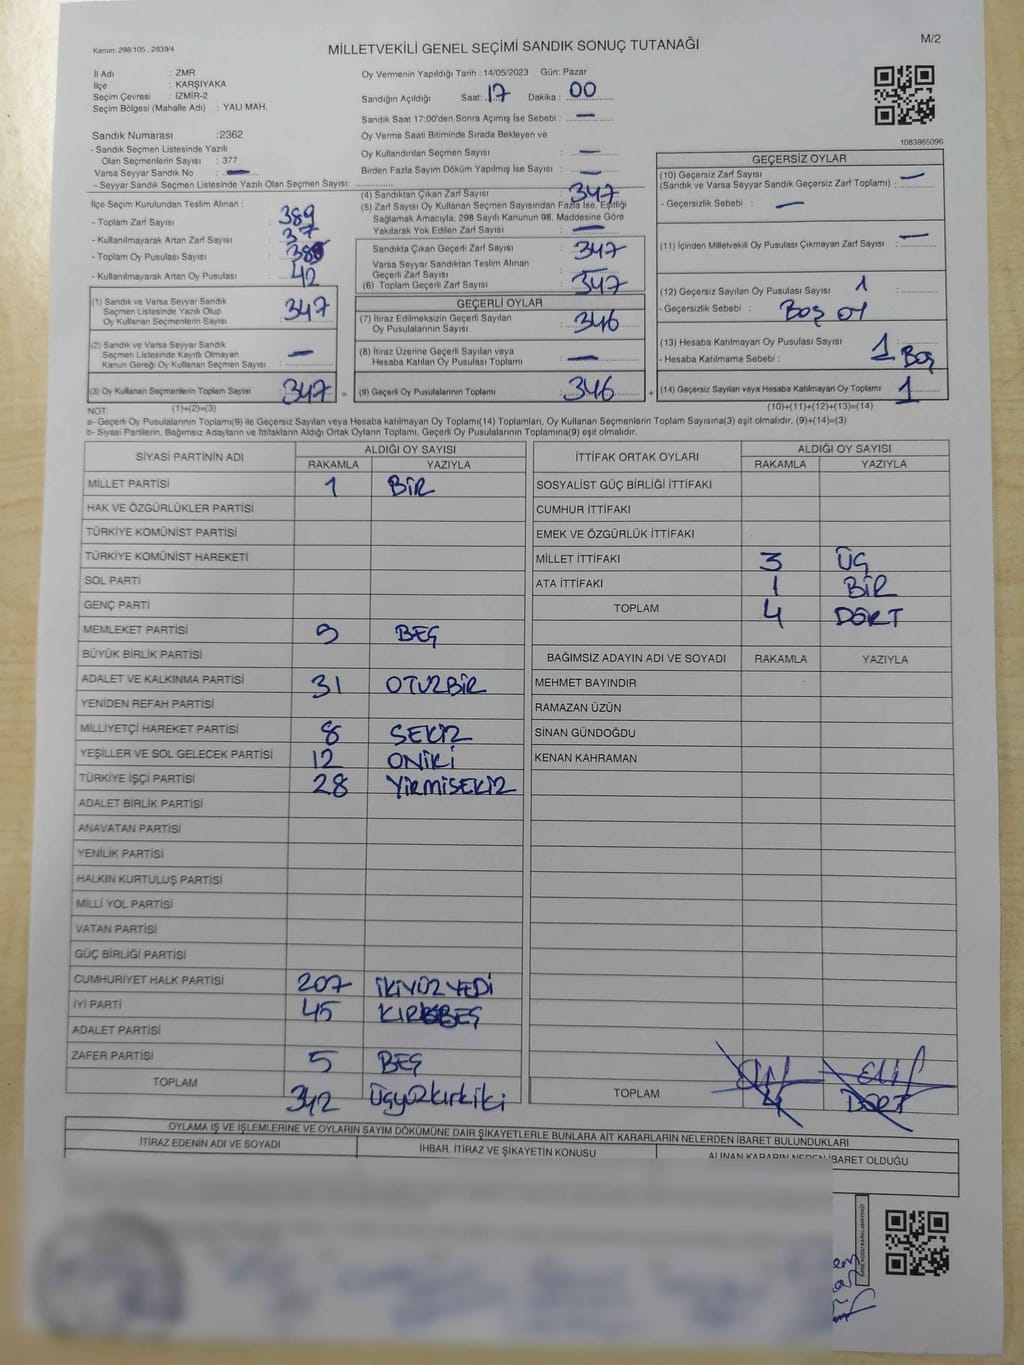 Kanun: 298/105 , 2839/4
MİLLETVEKİLİ GENEL SEÇİMİ SANDIK SONUÇ TUTANAĞI
M/2
İl Adı : ZMR
İlçe : KARŞIYAKA
Seçim Çevresi : İZMİR-2
Seçim Bölgesi (Mahalle Adı) : YALI MAH.
Sandık Numarası :2362
- Sandık Seçmen Listesinde Yazılı
Olan Seçmenlerin Sayısı : 377
Varsa Seyyar Sandık No : —
- Seyyar Sandık Seçmen Listesinde Yazılı Olan Seçmen Sayısı:
İlçe Seçim Kurulundan Teslim Alınan :
- Toplam Zarf Sayısı 389
- Kullanılmayarak Artan Zarf Sayısı 37
- Toplam Oy Pusulası Sayısı
- Kullanılmayarak Artan Oy Pusulası 42
(1) Sandık ve Varsa Seyyar Sandık
Seçmen Listesinde Yazılı Olup
Oy Kullanan Seçmenlerin Sayısı 347
(2) Sandık ve Varsa Seyyar Sandık
Seçmen Listesinde Kayıtlı Olmayan
Kanun Gereği Oy Kullanan Seçmen Sayısı : —
(3) Oy Kullanan Seçmenlerin Toplam Sayısı 347 =
Oy Vermenin Yapıldığı Tarih : 14/05/2023 Gün: Pazar
Sandığın Açıldığı Saat: 17 Dakika : 00
Sandık Saat 17:00'den Sonra Açımış İse Sebebi : —
Oy Verme Saati Bitiminde Sırada Bekleyen ve
Oy Kullandırılan Seçmen Sayısı : —
Birden Fazla Sayım Döküm Yapılmış İse Sayısı : —
(4) Sandıktan Çıkan Zarf Sayısı : 347
(5) Zarf Sayısı Oy Kullanan Seçmen Sayısından Fazla İse, Eşitliği
Sağlamak Amacıyla; 298 Sayılı Kanunun 98. Maddesine Göre
Yakılarak Yok Edilen Zarf Sayısı : —
Sandıkta Çıkan Geçerli Zarf Sayısı : 347
Varsa Seyyar Sandıktan Teslim Alınan
Geçerli Zarf Sayısı
(6) Toplam Geçerli Zarf Sayısı : 347
GEÇERLİ OYLAR
(7) İtiraz Edilmeksizin Geçerli Sayılan
Oy Pusulalarının Sayısı : 346
(8) İtiraz Üzerine Geçerli Sayılan veya
Hesaba Katılan Oy Pusulası Toplamı : —
(9) Geçerli Oy Pusulalarının Toplamı : 346 +
1083865096
GEÇERSİZ OYLAR
(10) Geçersiz Zarf Sayısı : —
(Sandık ve Varsa Seyyar Sandık Geçersiz Zarf Toplamı)
- Geçersizlik Sebebi : —
(11) İçinden Milletvekili Oy Pusulası Çıkmayan Zarf Sayısı : —
(12) Geçersiz Sayılan Oy Pusulası Sayısı : 1
- Geçersizlik Sebebi : Boş oy
(13) Hesaba Katılmayan Oy Pusulası Sayısı :
- Hesaba Katılmama Sebebi : 1 Boş
(14) Geçersiz Sayılan veya Hesaba Katılmayan Oy Toplamı : 1
NOT: (1)+(2)=(3)
(10)+(11)+(12)+(13)=(14)
a- Geçerli Oy Pusulalarının Toplamı(9) ile Geçersiz Sayılan veya Hesaba katılmayan Oy Toplamı(14) Toplamları, Oy Kullanan Seçmenlerin Toplam Sayısına(3) eşit olmalıdır. (9)+(14)=(3)
b- Siyasi Partilerin, Bağımsız Adayların ve İttifakların Aldığı Ortak Oyların Toplamı, Geçerli Oy Pusulalarının Toplamına(9) eşit olmalıdır.
SİYASİ PARTİNİN ADI
ALDIĞI OY SAYISI
RAKAMLA YAZIYLA
MİLLET PARTİSİ 1 BİR
HAK VE ÖZGÜRLÜKLER PARTİSİ
TÜRKİYE KOMÜNİST PARTİSİ
TÜRKİYE KOMÜNİST HAREKETİ
SOL PARTİ
GENÇ PARTİ
MEMLEKET PARTİSİ 5 BEŞ
BÜYÜK BİRLİK PARTİSİ
ADALET VE KALKINMA PARTİSİ 31 OTUZBİR
YENİDEN REFAH PARTİSİ
MİLLİYETÇİ HAREKET PARTİSİ 8 SEKİZ
YEŞİLLER VE SOL GELECEK PARTİSİ 12 ONİKİ
TÜRKİYE İŞÇİ PARTİSİ 28 YİRMİSEKİZ
ADALET BİRLİK PARTİSİ
ANAVATAN PARTİSİ
YENİLİK PARTİSİ
HALKIN KURTULUŞ PARTİSİ
MİLLİ YOL PARTİSİ
VATAN PARTİSİ
GÜÇ BİRLİĞİ PARTİSİ
CUMHURİYET HALK PARTİSİ 207 İKİYÜZYEDİ
İYİ PARTİ 45 KIRKBEŞ
ADALET PARTİSİ
ZAFER PARTİSİ 5 BEŞ
TOPLAM 342 Üçyüzkırkiki
İTTİFAK ORTAK OYLARI
ALDIĞI OY SAYISI
RAKAMLA YAZIYLA
SOSYALİST GÜÇ BİRLİĞİ İTTİFAKI
CUMHUR İTTİFAKI
EMEK VE ÖZGÜRLÜK İTTİFAKI
MİLLET İTTİFAKI 3 ÜÇ
ATA İTTİFAKI 1 BİR
TOPLAM 4 DÖRT
BAĞIMSIZ ADAYIN ADI VE SOYADI RAKAMLA YAZIYLA
MEHMET BAYINDIR
RAMAZAN ÜZÜN
SİNAN GÜNDOĞDU
KENAN KAHRAMAN
TOPLAM 4 DÖRT
OYLAMA İŞ VE İŞLEMLERİNE VE OYLARIN SAYIM DÖKÜMÜNE DAİR ŞİKAYETLERLE BUNLARA AİT KARARLARIN NELERDEN İBARET BULUNDUKLARI
İTİRAZ EDENİN ADI VE SOYADI
İHBAR, İTİRAZ VE ŞİKAYETİN KONUSU
ALINAN KARARIN NEDEN İBARET OLDUĞU